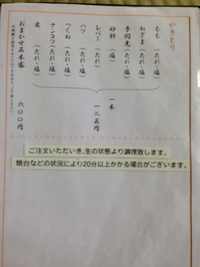 やきとり
もも(たれ・塩)
ねぎま(たれ・塩)
手羽先(たれ・塩)
砂肝(塩)
レバー(たれ)
ハツ(たれ・塩)
つくね(たれ・塩)
ナンコツ(たれ・塩)
皮(たれ・塩)
一本
一二五円
おまかせ五本盛
六〇〇円
ご注文いただいき、生の状態より調理致します。
焼台などの状況により20分以上かかる場合がございます。